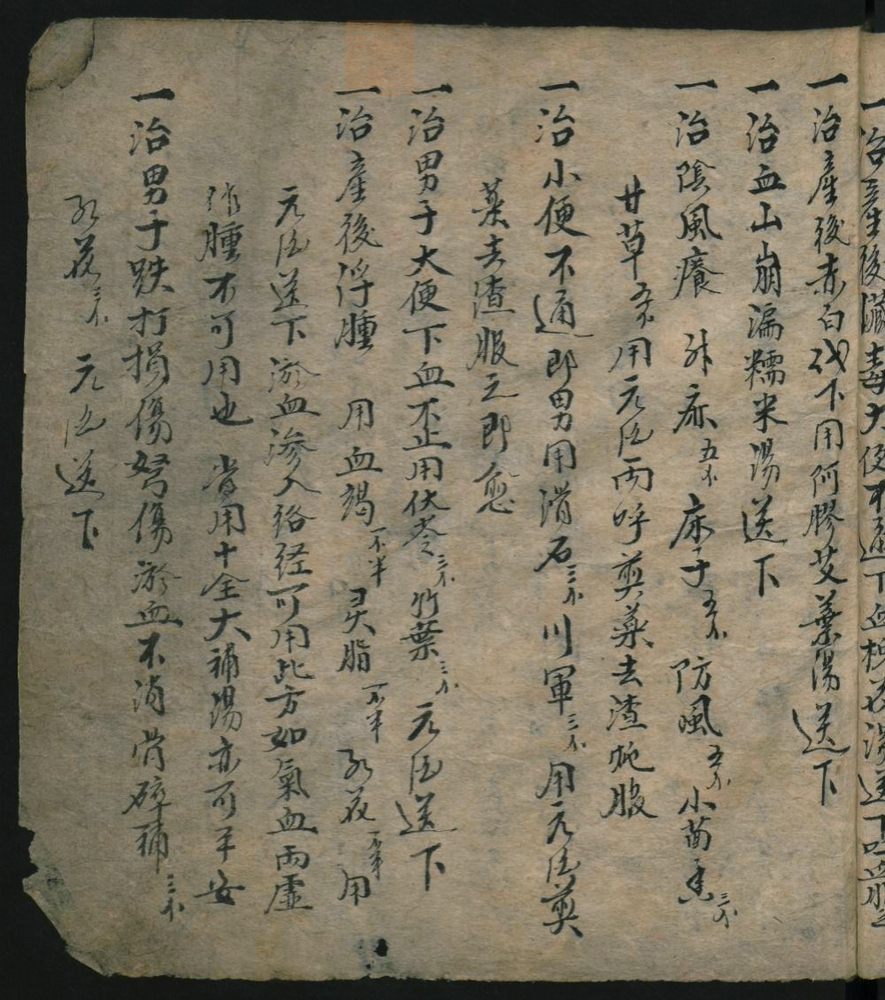 一治產後臟毒大便不通下血桃花湯送下
一治產後赤白代下用阿膠艾葉湯送下
一治血山崩漏糯米湯送下
一治陰風癢 五 床子五 防風五 小茴香三
甘草 用元酒兩呼煎藥去渣晚服
一治小便不通即男用滑石三 川軍三 用元酒煎
藥去渣服之即愈
一治男子大便下血不止用伏苓三 竹葉三 元酒送下
一治產後浮腫 用血竭一 半 灵脂一 半 紅花一 半 用
元酒送下淤血滲入络经可用此方如氣血兩虛
腫不可用也 常用十全大補湯亦可平安
一治男子跌打損傷努傷淤血不消骨碎補三
紅花三 元酒送下